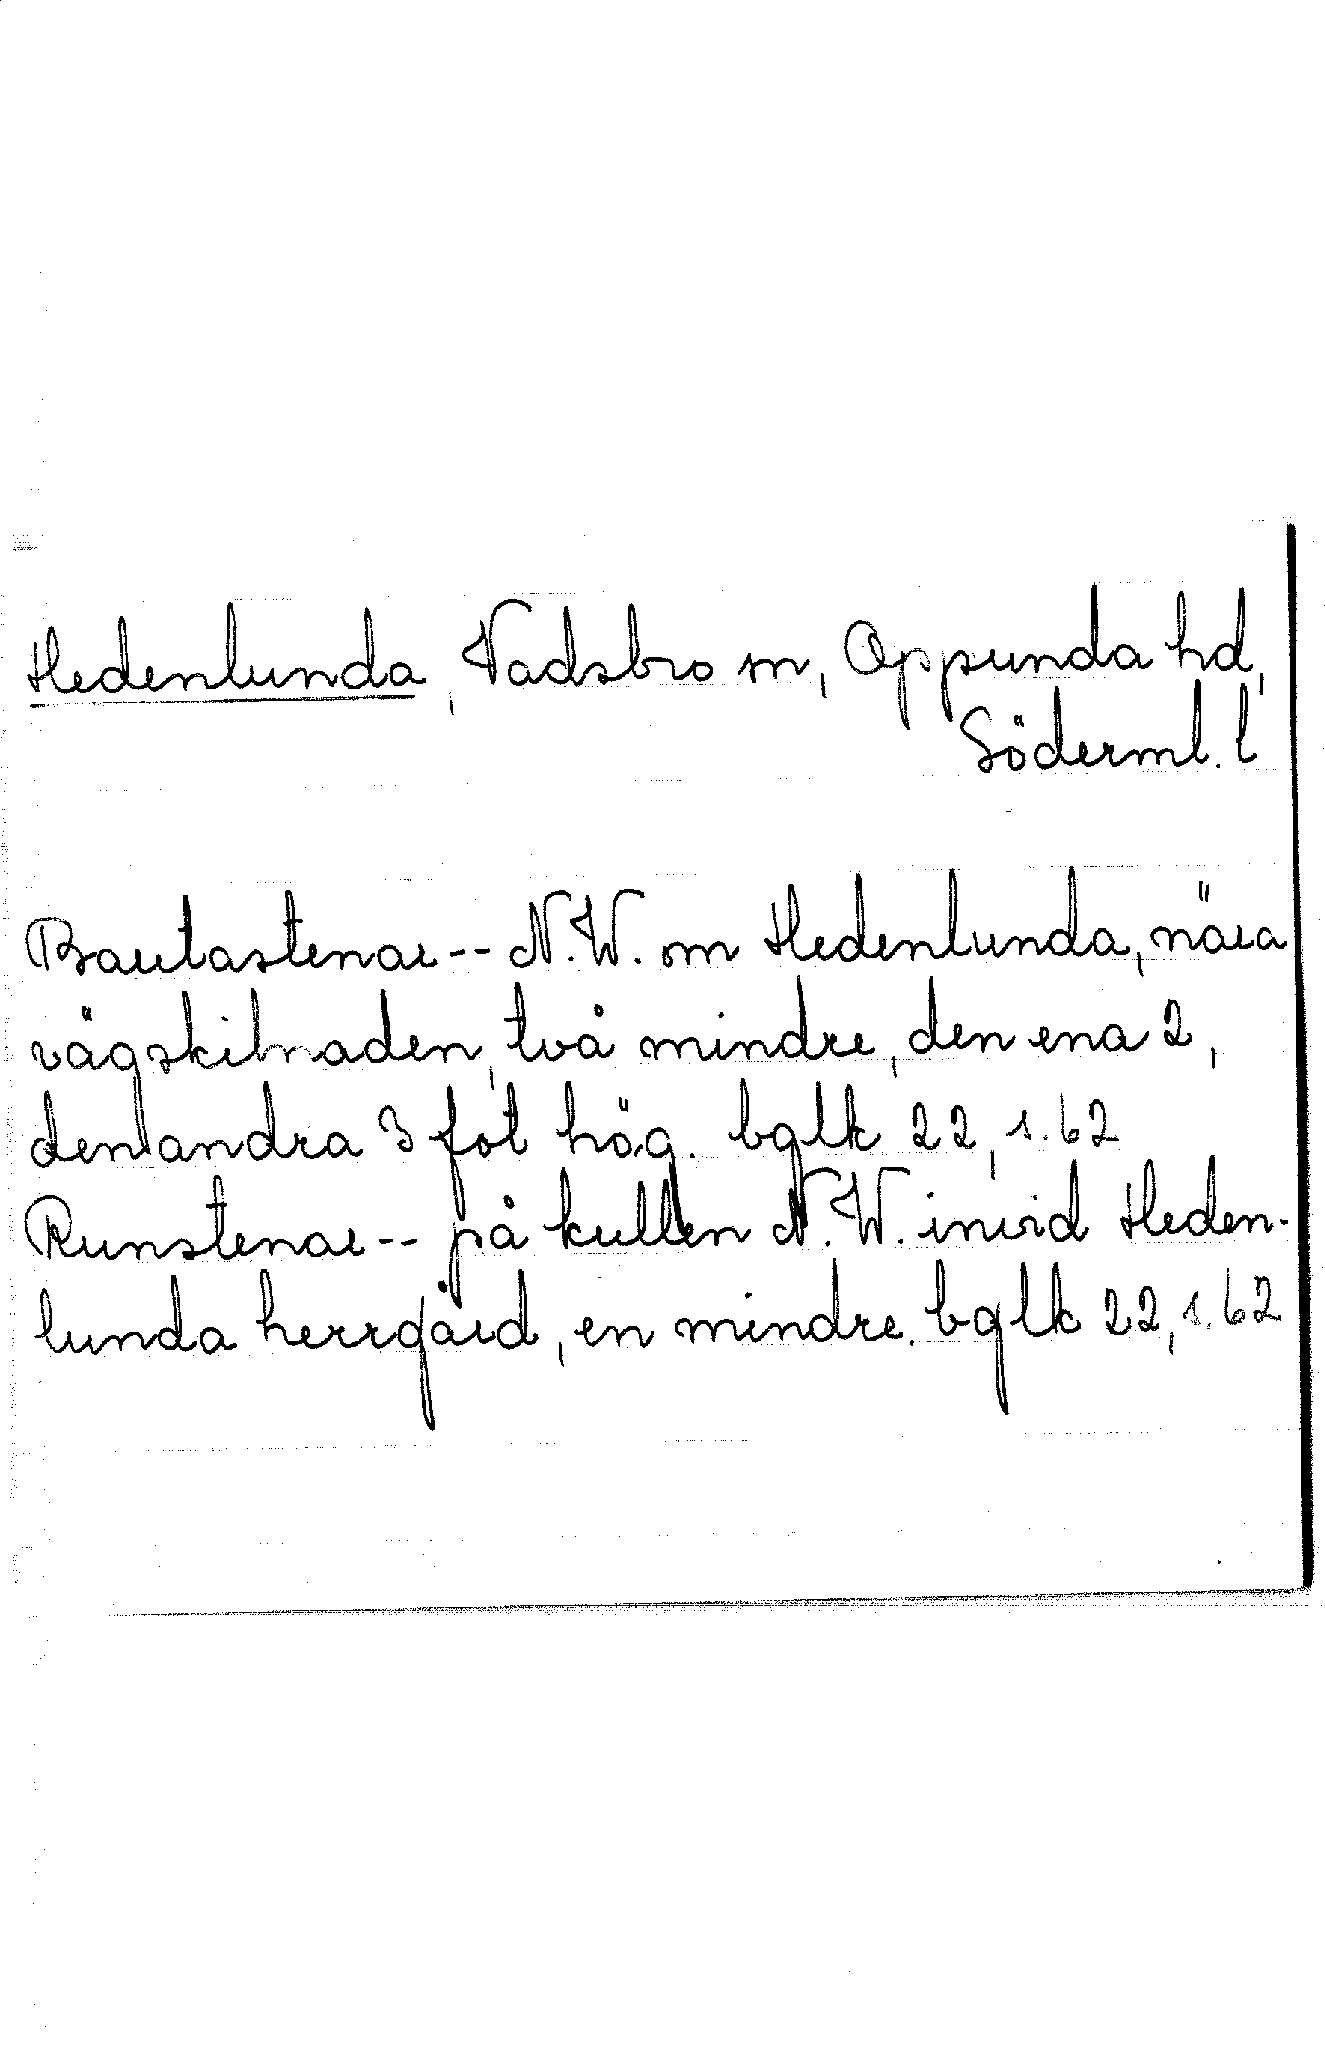 Hedenlunda, Vadsbro sn, Oppunda hd,
Söderml. l
Bautastenar -- N.W. om Hedenlunda, nära
vägskilnaden, två mindre, den ena 2,
den andra 3 fot hög. bglk 22, s. 62
Runstenar -- på kullen N.W. invid Heden-
lunda herrgård, en mindre. bglk 22, s. 62